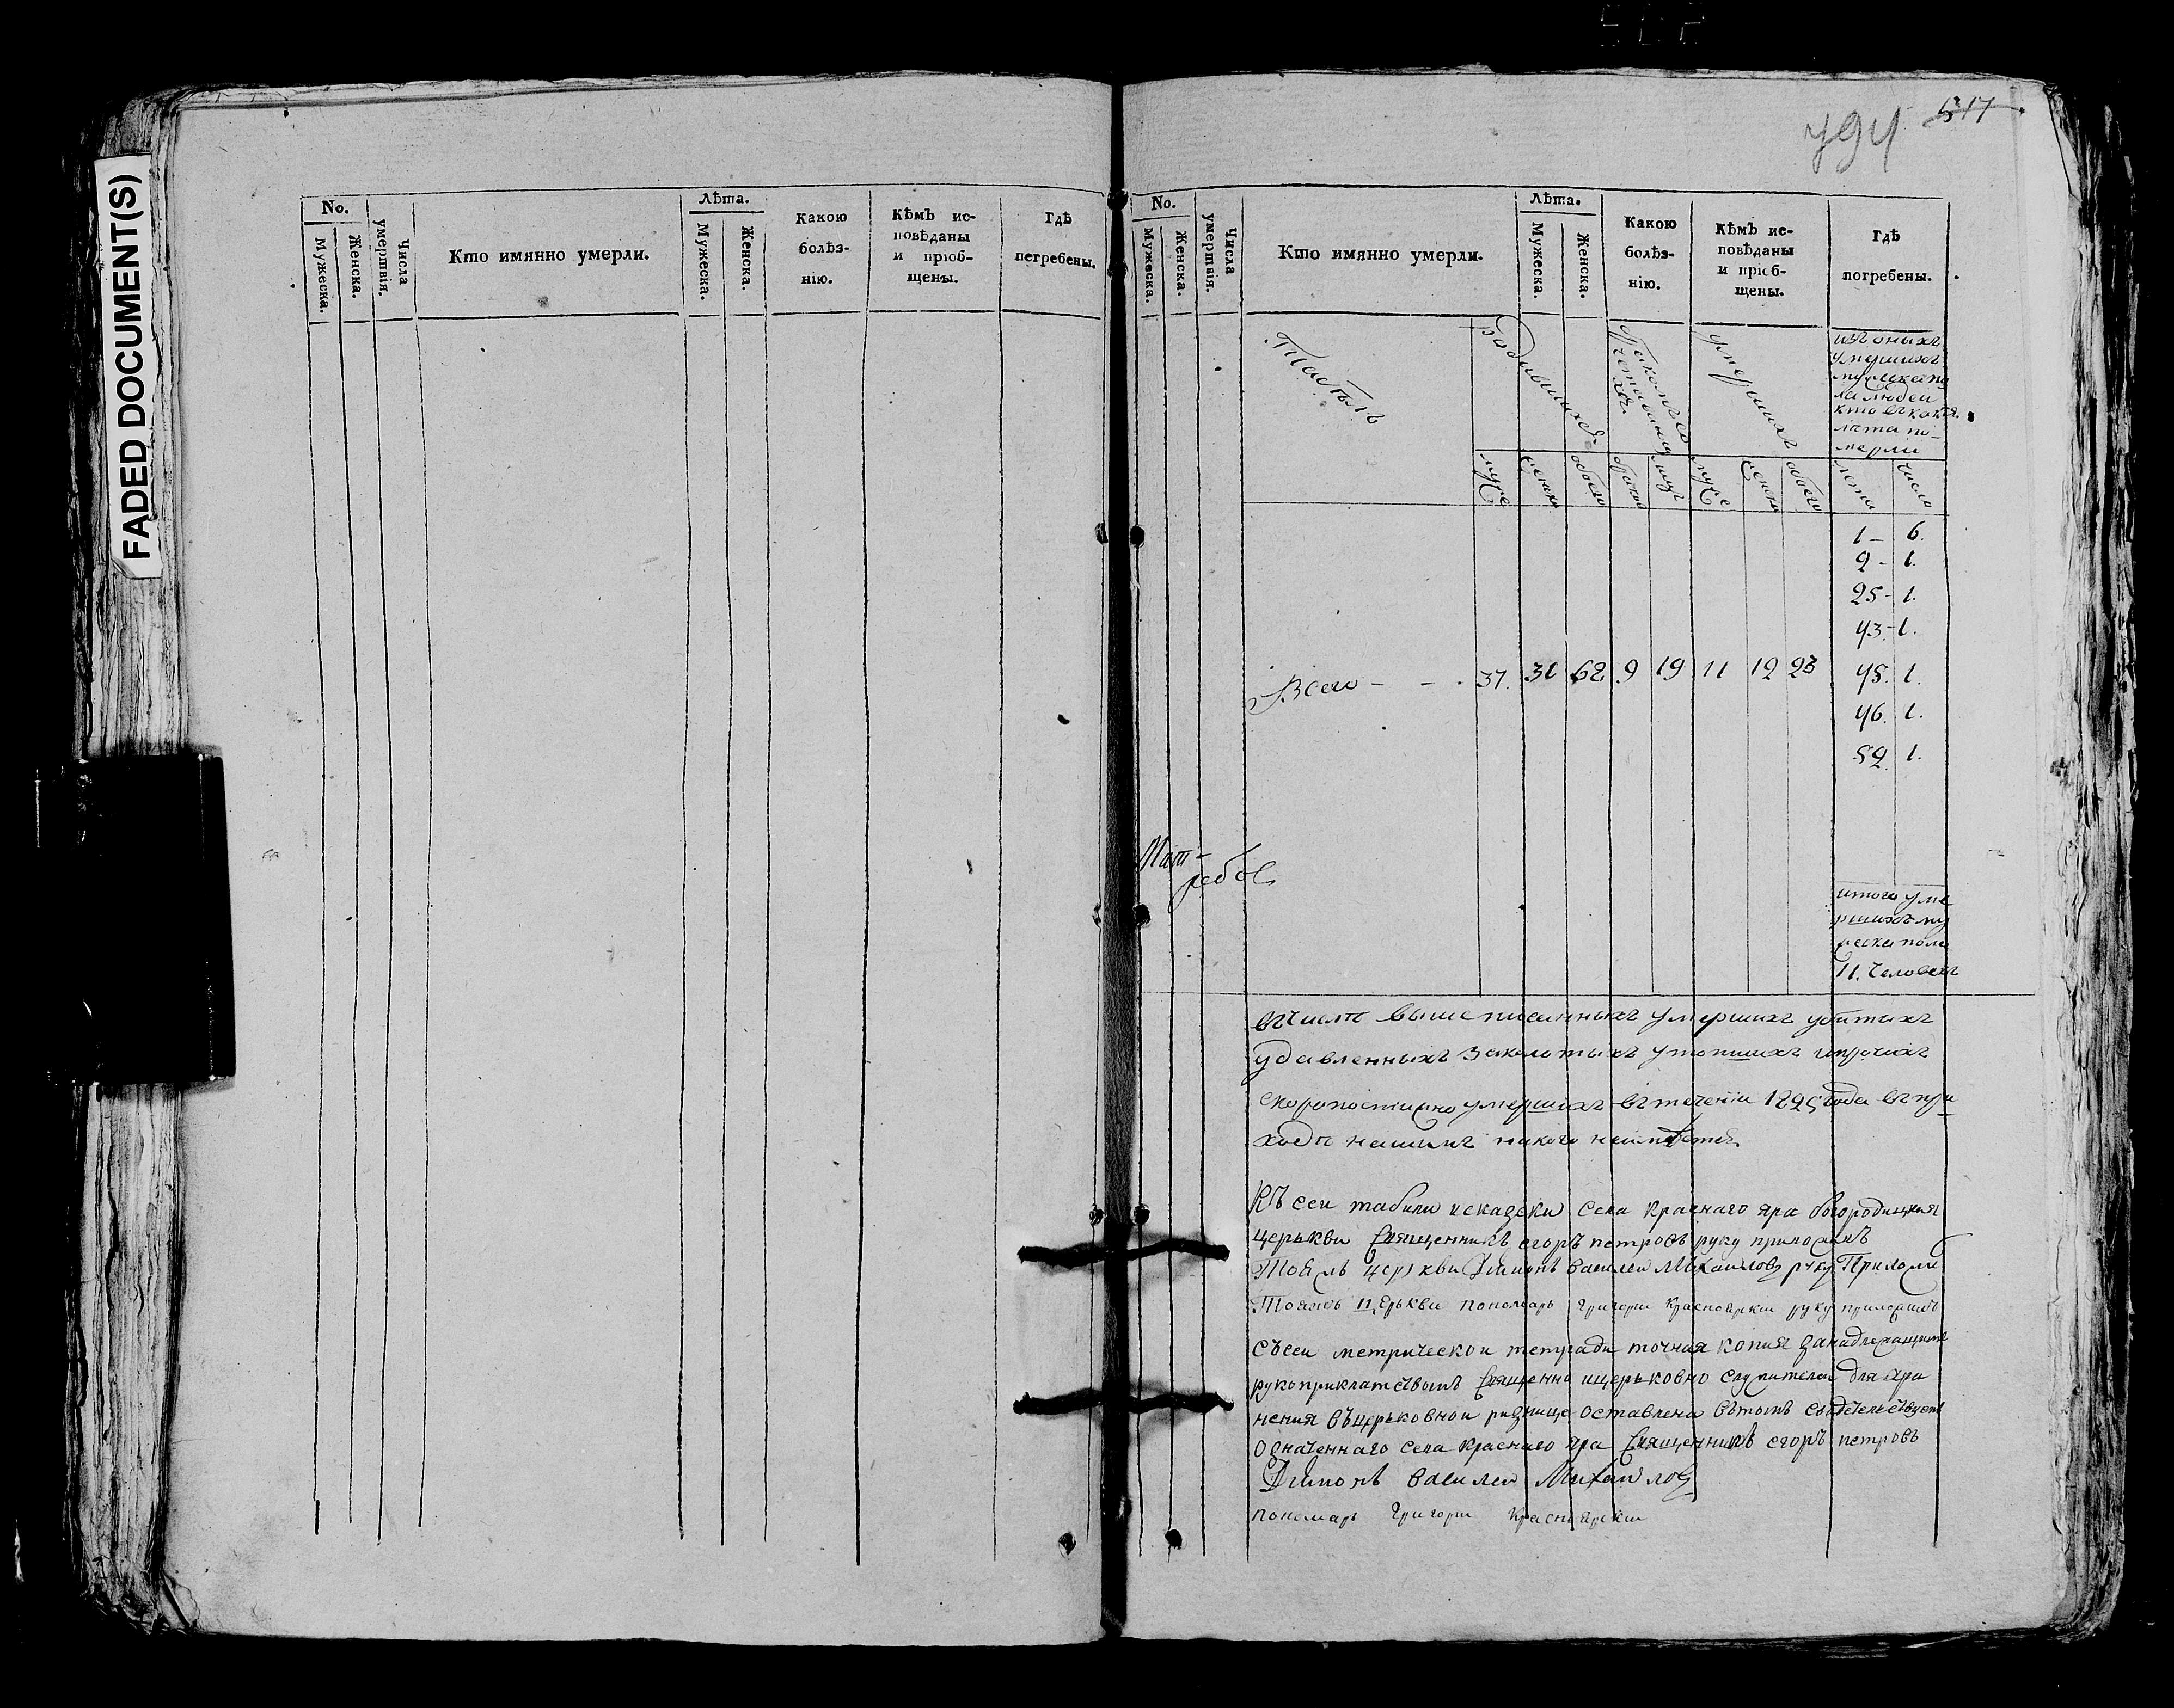 FADED DOCUMENT(S)
317
No.
Мужеска.
Женска.
Числа
умертвія.
Кто имянно умерли.
Лѣта.
Мужеска.
Женска.
Какою
болѣз-
нію.
Кѣмъ ис-
повѣданы
и пріоб-
щены.
Гдѣ
погребены.
No.
Мужеска.
Женска.
Числа
умертвія.
Кто имянно умерли.
Лѣта.
Мужеска.
Женска.
Какою
болѣз-
нію.
Кѣмъ ис-
повѣданы
и пріоб-
щены.
Гдѣ
погребены.
Табѣль
родившихся
умершихъ
изъ оныхъ
умершихъ
мужска по
ла людей
кто въ какія
лѣта по-
мерли
муже
женск
обоего
браковъ
муже
женск
обоего
лѣта
число
1 - 6.
2 - 1.
25 - 1.
43. - 1.
Всего - - . 31. 31 62 9 19 11 12 23
45. 1.
46. 1.
52. 1.
итого уме
ршихъ му
жеска пола
11. человекъ
въ числѣ вышеписанныхъ умершихъ убитыхъ
удавленныхъ заколотыхъ утопшихъ и прочихъ
скоропостижно умершихъ въ теченіи 1825 года въ при
ходѣ нашимъ никого неимѣетса
Къ сеи табили и сказски села Краснаго яра богородицкия
церькви Священникъ егоръ петровъ руку приложилъ
Тояжъ церкви Диконъ василеи Михаиловъ руку Приложи
Тояжъ Церькви пономарь григории Красноярскии руку приложилъ
Съ сеи метрическои тетради точная копия за надлежащимъ
рукоприкладствомъ Священно и церьковно служителеи для хра
нения въ церьковнои ризнице оставлена въ томъ свидетельствуетъ
означеннаго села Краснаго яра Священникъ егоръ петровъ
Диконъ василеи Михаиловъ
пономарь григории Красноярскии